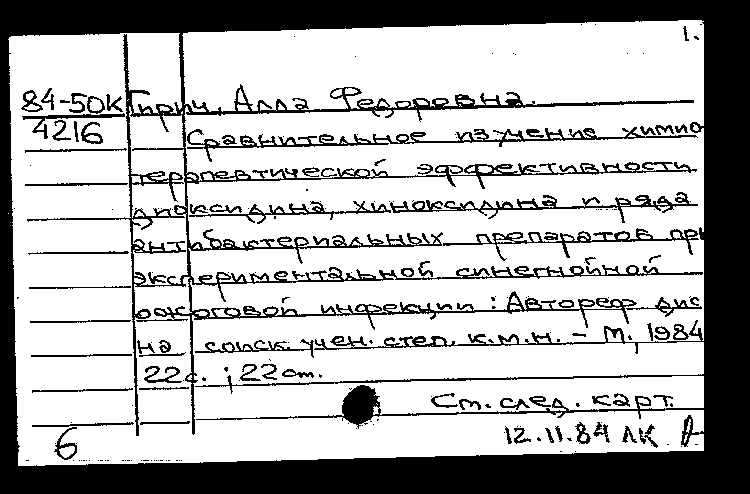 1.
84-50к Гирич, Алла Федоровна.
4216 Сравнительное изучение химио
терапевтической эффективности
диоксидина, хиноксидина и ряда
антибактериальных препаратов при
экспериментальной синегнойной
ожоговой инфекции : Автореф дис
на соиск. учен. степ. к.м.н. - М., 1984
22с. ; 22 см.
См. след. карт.
6 12.11.84 ЛК